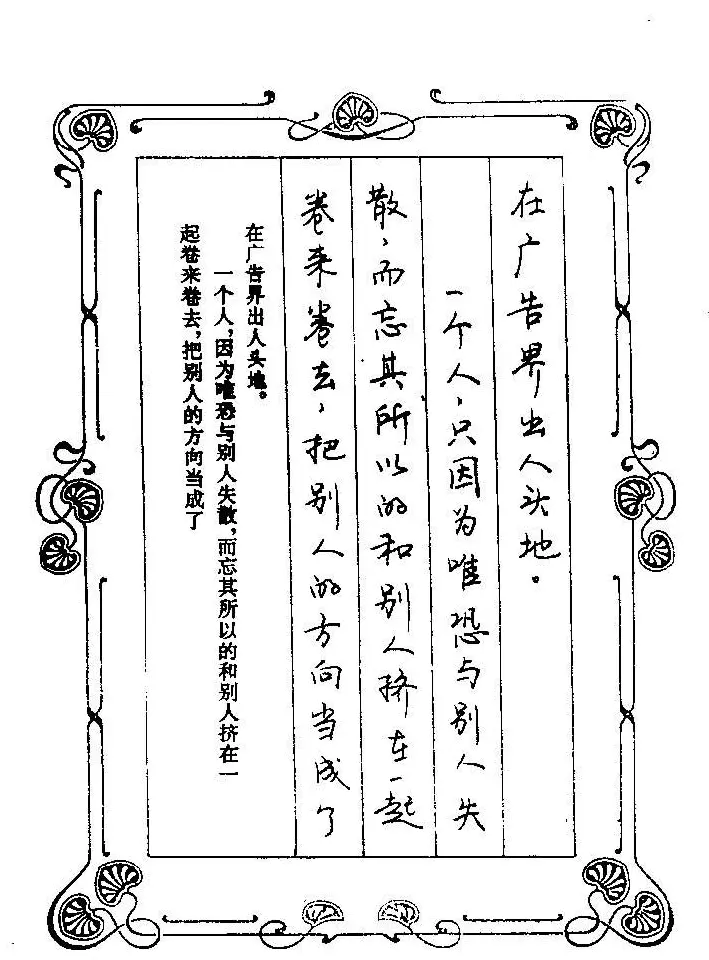 在广告界出人头地。
一个人，只因为唯恐与别人失
散，而忘其所以的和别人挤在一起
卷来卷去，把别人的方向当成了
在广告界出人头地。
一个人，因为唯恐与别人失散，而忘其所以的和别人挤在一
起卷来卷去，把别人的方向当成了